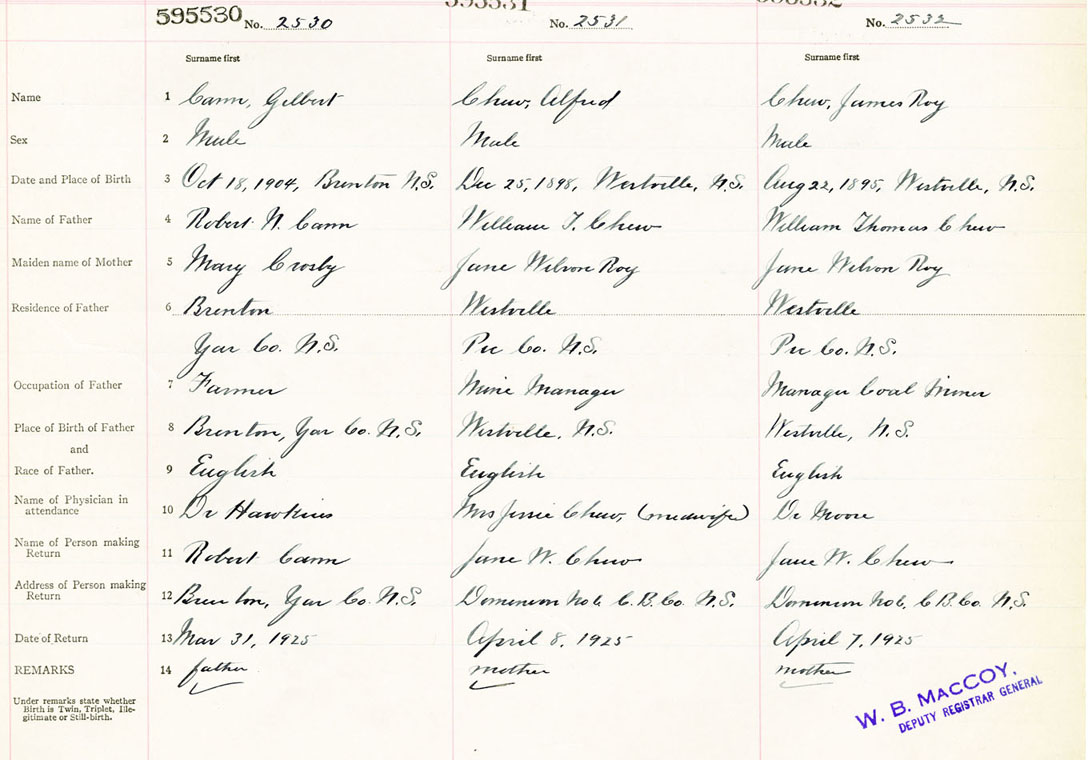 595530 No. 2530 No. 2531 No. 2532
Surname first Surname first Surname first
Name 1 Cann, Gilbert Chew, Alfred Chew, James Roy
Sex 2 Male Male Male
Date and Place of Birth 3 Oct 18, 1904, Brenton N.S. Dec 25, 1898, Westville, N.S. Aug 22, 1895, Westville, N.S.
Name of Father 4 Robert N. Cann William T. Chew William Thomas Chew
Maiden name of Mother 5 Mary Crosby Jane Wilson Roy Jane Wilson Roy
Residence of Father 6 Brenton Westville Westville
Yar Co. N.S. Pic Co. N.S. Pic Co. N.S.
Occupation of Father 7 Farmer Mine Manager Manager Coal Mines
Place of Birth of Father 8 Brenton, Yar Co. N.S. Westville, N.S. Westville, N.S.
and
Race of Father. 9 English English English
Name of Physician in
attendance 10 Dr Hawkins Mrs Jessie Chew, (midwife) Dr Moore
Name of Person making
Return 11 Robert Cann Jane W. Chew Jane W. Chew
Address of Person making
Return 12 Brenton, Yar Co. N.S. Dominion No 6, C.B. Co. N.S. Dominion No 6, C B. Co. N.S.
Date of Return 13 Mar 31, 1925 April 8, 1925 April 7, 1925
REMARKS 14 father mother mother
Under remarks state whether
Birth is Twin, Triplet, Ille-
gitimate or Still-birth.
W. B. MACCOY,
DEPUTY REGISTRAR GENERAL